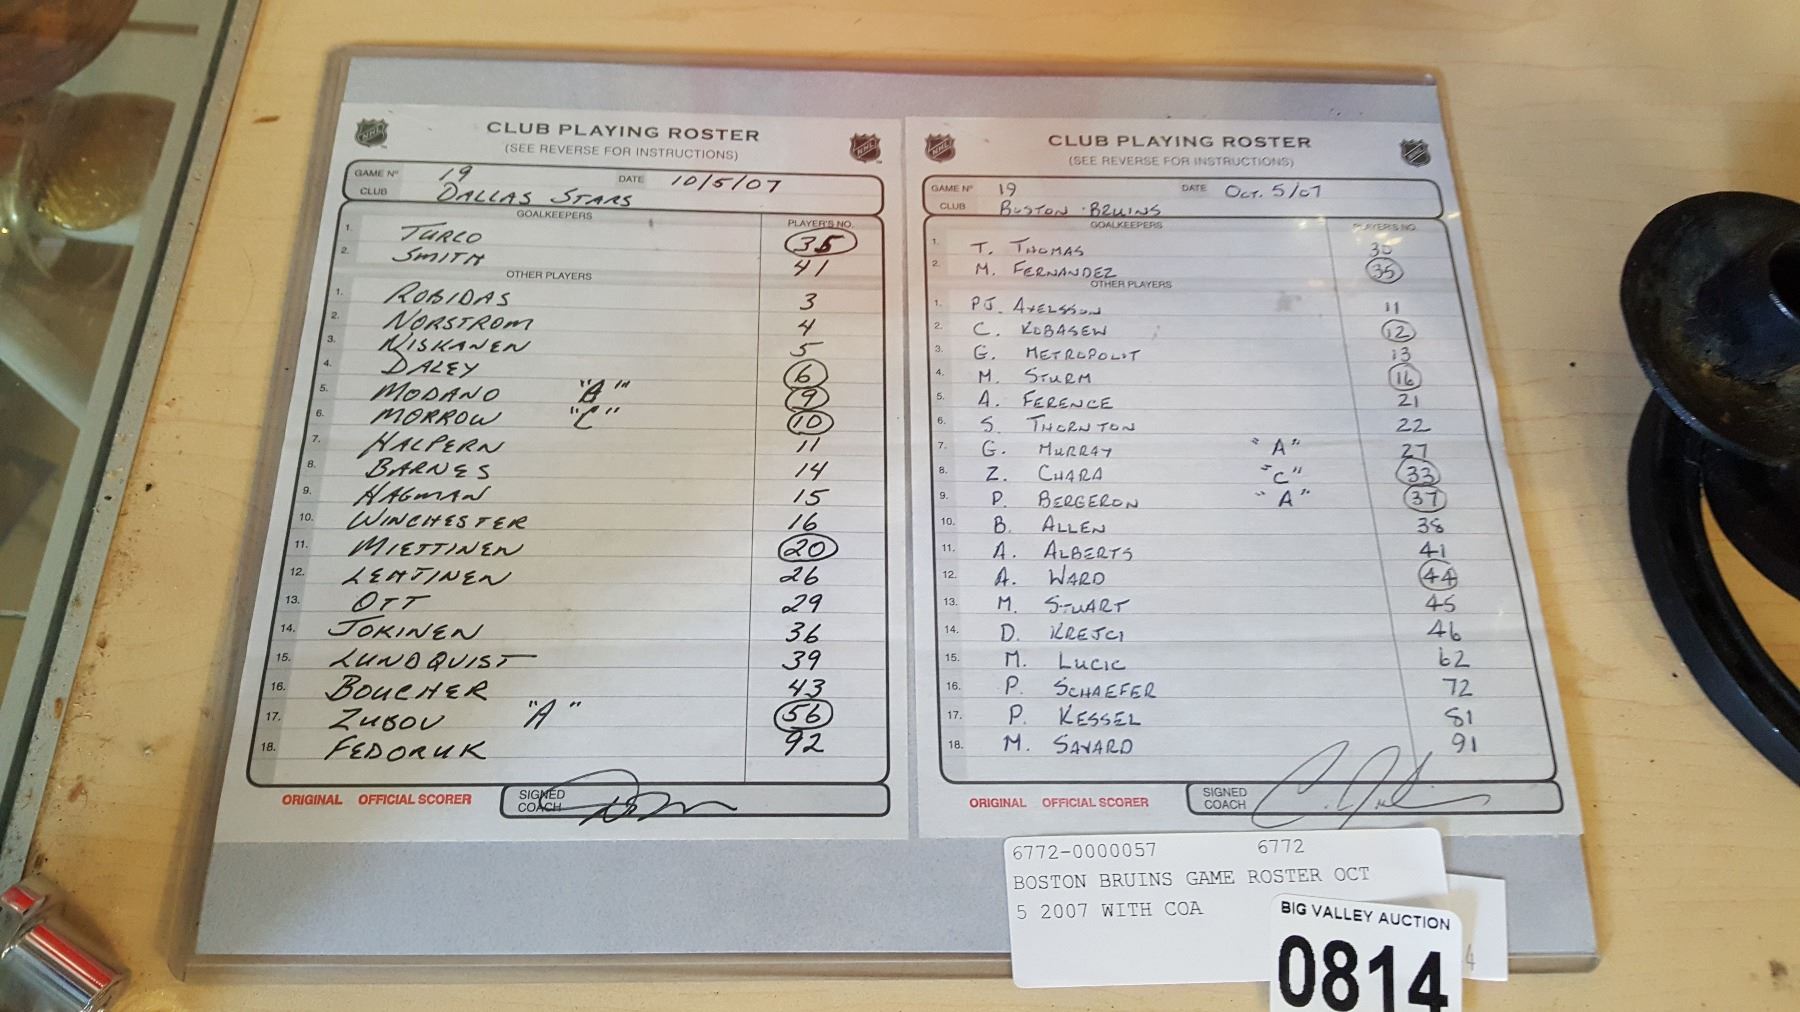 CLUB PLAYING ROSTER
(SEE REVERSE FOR INSTRUCTIONS)
NHL
NHL
GAME Nº 19 DATE 10/5/07
CLUB DALLAS STARS
GOALKEEPERS PLAYER'S NO.
1. TURCO 35
2. SMITH 41
OTHER PLAYERS
1. ROBIDAS 3
2. NORSTROM 4
3. NISKANEN 5
4. DALEY 6
5. MODANO "A" 9
6. MORROW "C" 10
7. HALPERN 11
8. BARNES 14
9. HAGMAN 15
10. WINCHESTER 16
11. MIETTINEN 20
12. LEHTINEN 26
13. OTT 29
14. JOKINEN 36
15. LUNDQUIST 39
16. BOUCHER 43
17. ZUBOV "A" 56
18. FEDORUK 92
ORIGINAL OFFICIAL SCORER SIGNED COACH
CLUB PLAYING ROSTER
(SEE REVERSE FOR INSTRUCTIONS)
NHL
NHL
GAME Nº 19 DATE OCT. 5/07
CLUB BOSTON BRUINS
GOALKEEPERS PLAYER'S NO.
1. T. THOMAS 30
2. M. FERNANDEZ 35
OTHER PLAYERS
1. PJ. AXELSSON 11
2. C. KOBASEW 12
3. G. METROPOLIT 13
4. M. STURM 16
5. A. FERENCE 21
6. S. THORNTON 22
7. G. MURRAY "A" 27
8. Z. CHARA "C" 33
9. P. BERGERON "A" 37
10. B. ALLEN 38
11. A. ALBERTS 41
12. A. WARD 44
13. M. STUART 45
14. D. KREJCI 46
15. M. LUCIC 62
16. P. SCHAEFER 72
17. P. KESSEL 81
18. M. SAVARD 91
ORIGINAL OFFICIAL SCORER SIGNED COACH
6772-0000057 6772
BOSTON BRUINS GAME ROSTER OCT
5 2007 WITH COA
BIG VALLEY AUCTION
0814
4